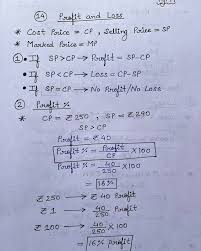 (14) Profit and Loss
* Cost Price = CP, Selling Price = SP
* Marked Price = MP
① • If SP>CP → Profit = SP-CP
• If SP<CP → Loss = CP-SP
• If SP=CP → No Profit/No Loss
② Profit %
* CP = ₹250, SP = ₹290
SP>CP
Profit = ₹40
Profit % = Profit/CP × 100
Profit % = 40/250 × 100
= 16%
₹250 → ₹40 Profit
₹1 → 40/250 Profit
₹100 → 40/250 × 100
= 16% profit